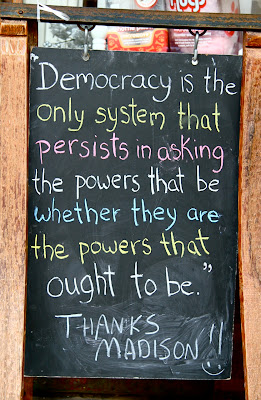 Democracy is the
only system that
persists in asking
the powers that be
whether they are
the powers that
ought to be."
THANKS
MADISON!!